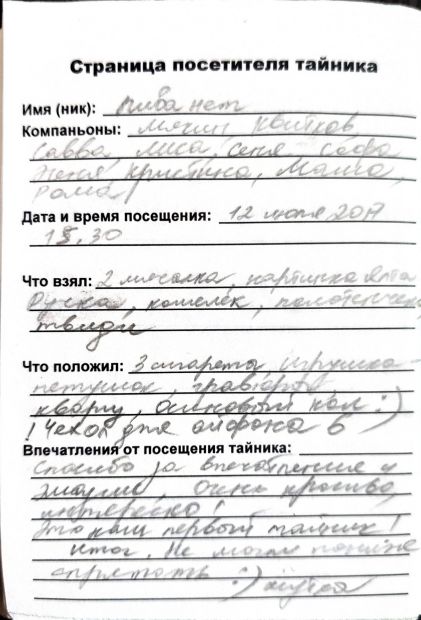 Страница посетителя тайника
Имя (ник): пива нет
Компаньоны: Мякиш, Квитков,
Савва, Лиса, Сеня, Софа
Женя, Кристина, Маша,
Рома
Дата и время посещения: 12 июля 2017
15.30
Что взял: 2 мочалка, картинка Ялта
Ручка, кошелёк, полотенчик
твиди
Что положил: 3 сигареты, игрушка-
петушок,
кварц, осиновый кол :)
! Чехол для айфона 6
Впечатления от посещения тайника:
Спасибо за впечатление и
эмоции, очень красиво,
интересно!
Это наш первый тайник!
Не могли
спрятать :)